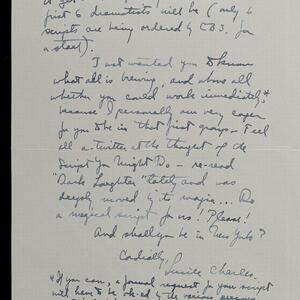 first 6 dramatists, will be (only 6
scripts are being ordered by CBS. for
a start).
I just wanted you to know
what all is brewing, and above all
whether you could work immediately,*
because I personally am very eager
for you to be in that first group — I feel
all a-twitter at the thought of the
Script You Might Do — re-read
"Dark Laughter" lately and was
deeply moved by its magic... Do
a magical script for us! Please!
And shall you be in New York?
Cordially,
Lucile Charles.
*If you can, a formal request for your script
will have to be ok-ed by the various